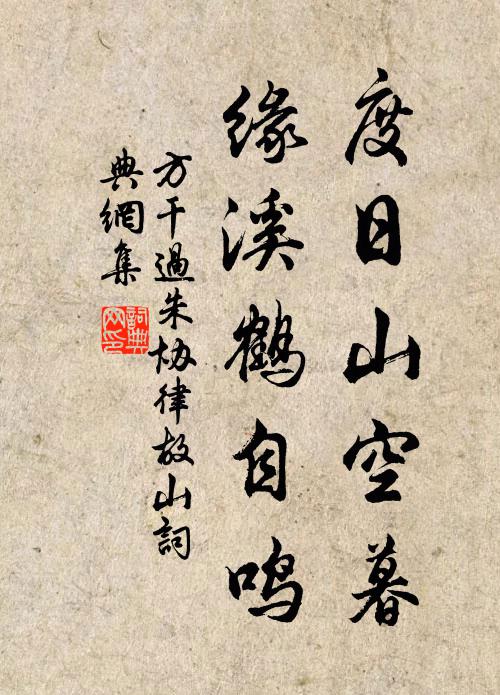 度日山空暮
缘溪鶴自鸣
方干過朱协律故山詞
典網集
詞典
网印